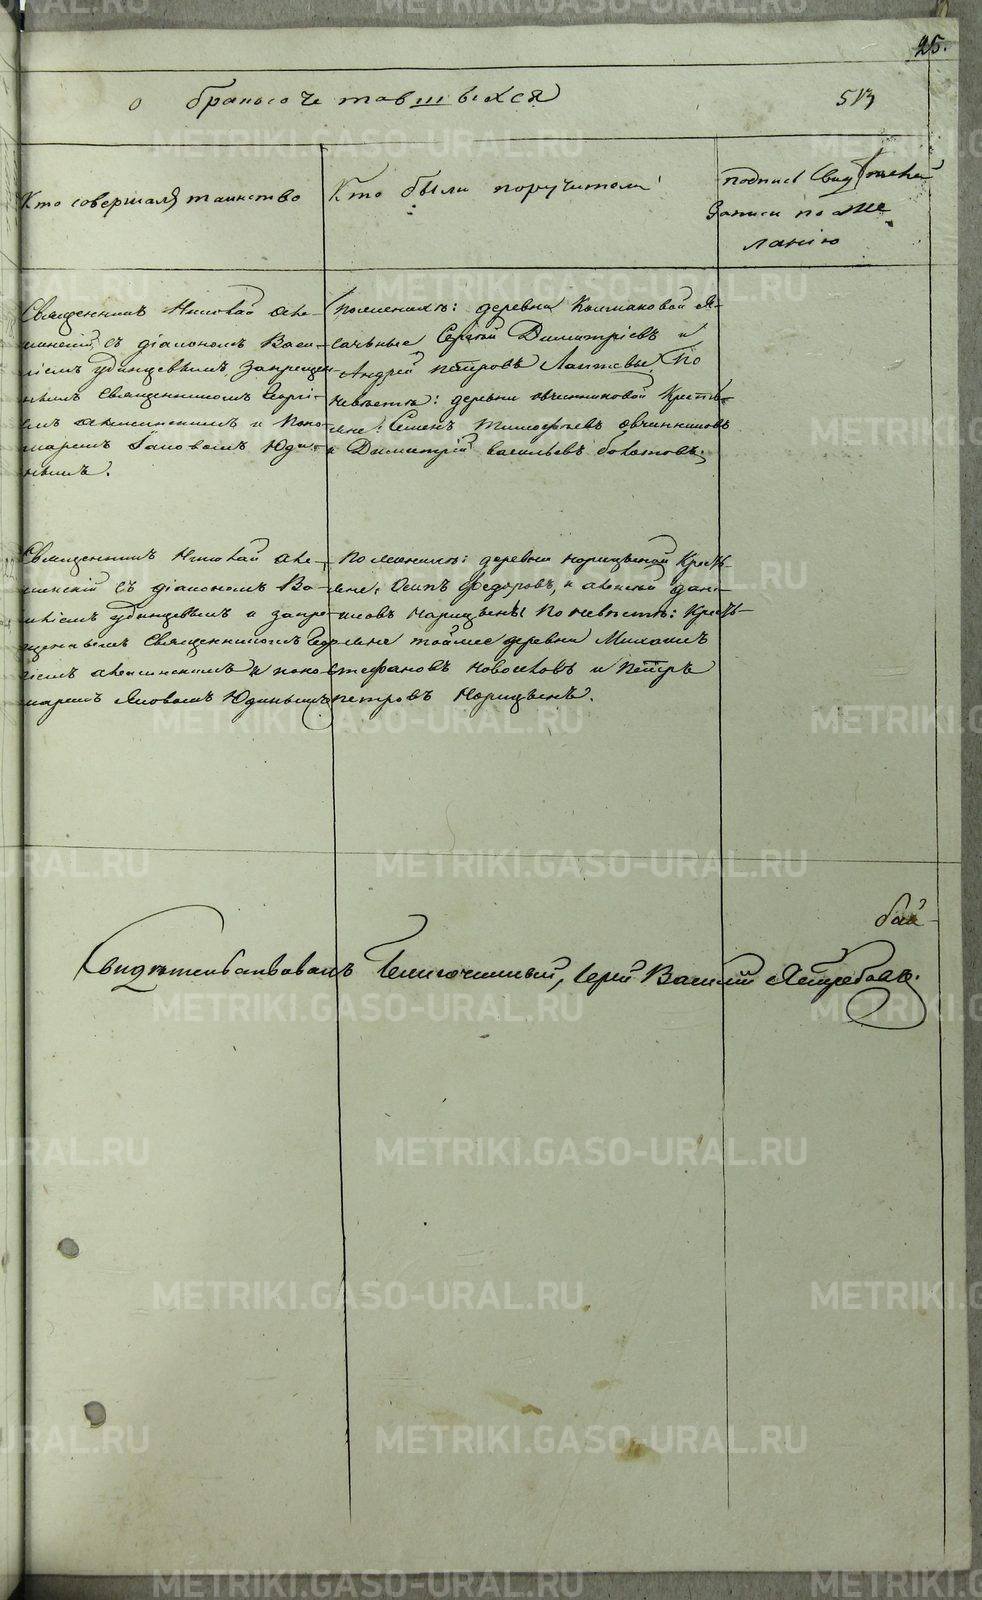 25.
о бракосочетавшихся
513
Кто совершалъ таинство
Кто были поручители
подписи свидѣтелей
записи по же
ланію
Священникъ Николай
с діакономъ Васи-
ліемъ Удинцевымъ запрещен-
нымъ священникомъ Георгі-
емъ и поно-
маремъ Іаковомъ Юди-
нымъ.
по женихѣ: деревни Колпаковой Я-
сачные Сергѣй Димитріевъ и
Андрей Петровъ Лаптевы. По
невѣстѣ: деревни Овчинниковой Кресть-
яне: Семенъ Тимофѣевъ Овчинниковъ
и Димитрій Васильевъ
Священникъ Николай
съ діакономъ Ва-
силіемъ Удинцевымъ и запре-
щеннымъ Священникомъ Геор-
гіемъ и поно-
маремъ Яковомъ Юдинымъ
По женихѣ: деревни Норицыной Кресть-
яне: Осипъ Федоровъ, и Алексѣй Дани-
ловъ Норицыны По невѣстѣ: Кресть-
яна той же деревни
Стефановъ Новоселовъ и Петръ
Петровъ Норицынъ.
бла-
Свидѣтельствовалъ Благочинный, Іерей Василій Ястребовъ.
METRIKI.GASO-URAL.RU